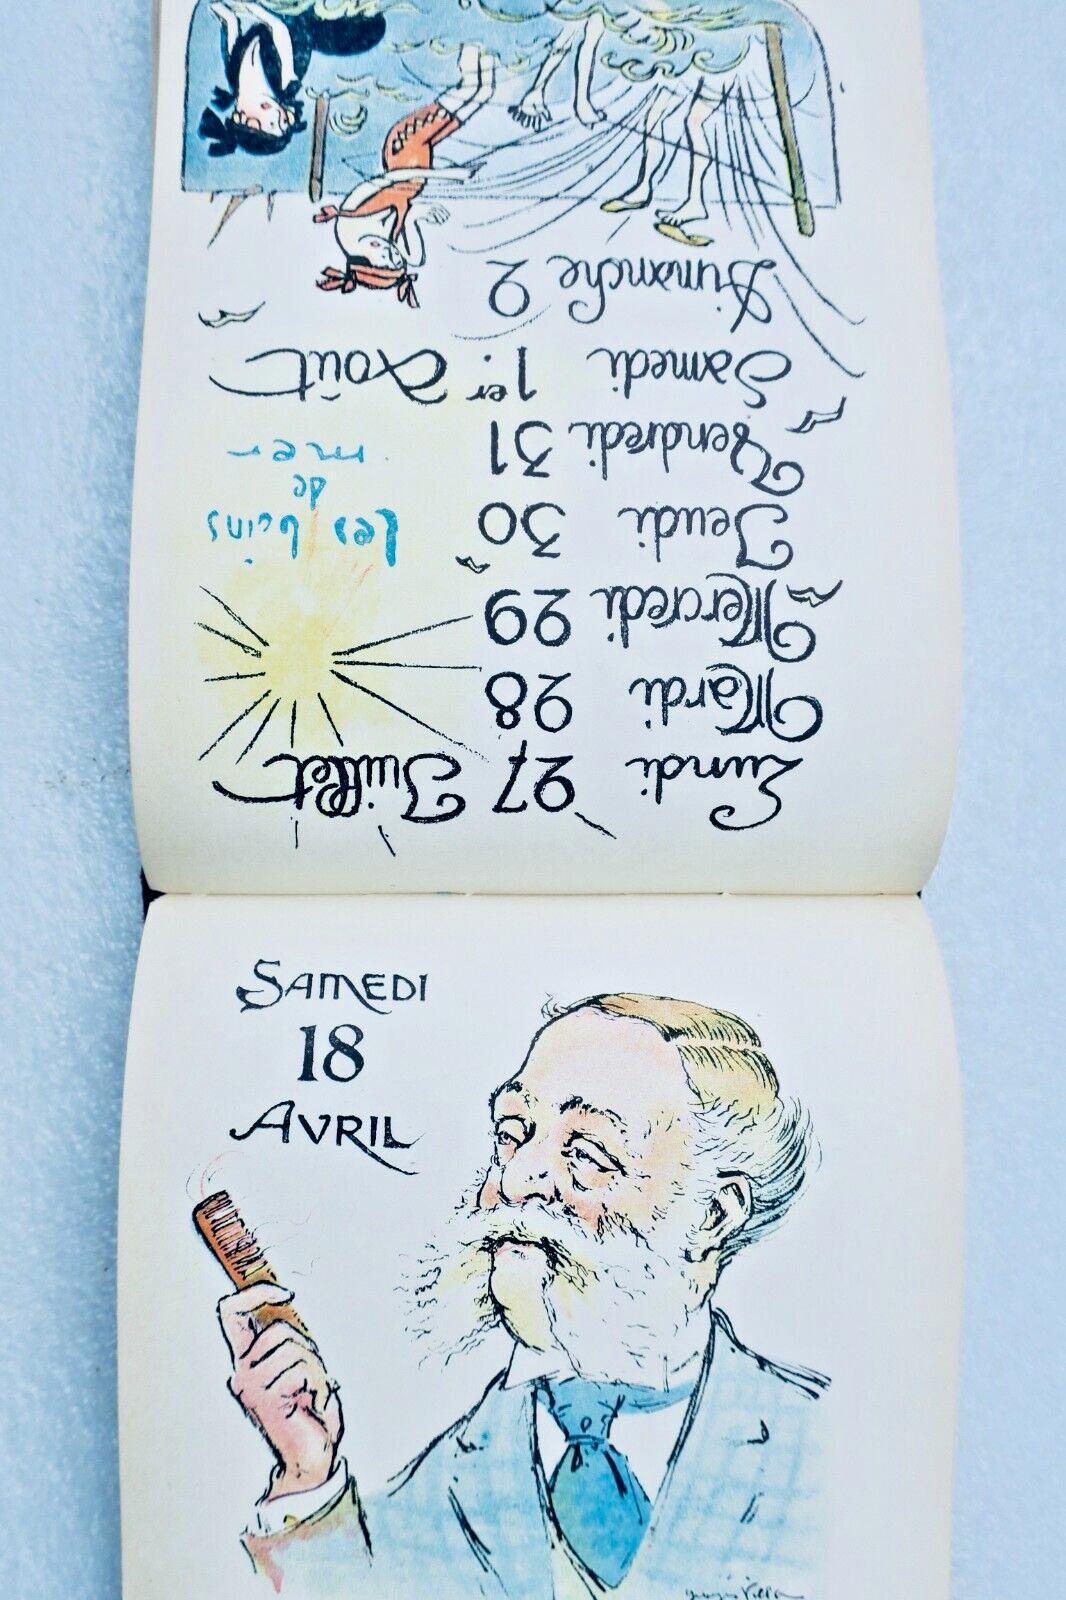 Lundi 27 Juillet
Mardi 28
Mercredi 29
Jeudi 30
Vendredi 31
Samedi 1er. Août
Dimanche 2
Les bains
de
mer
SAMEDI
18
AVRIL